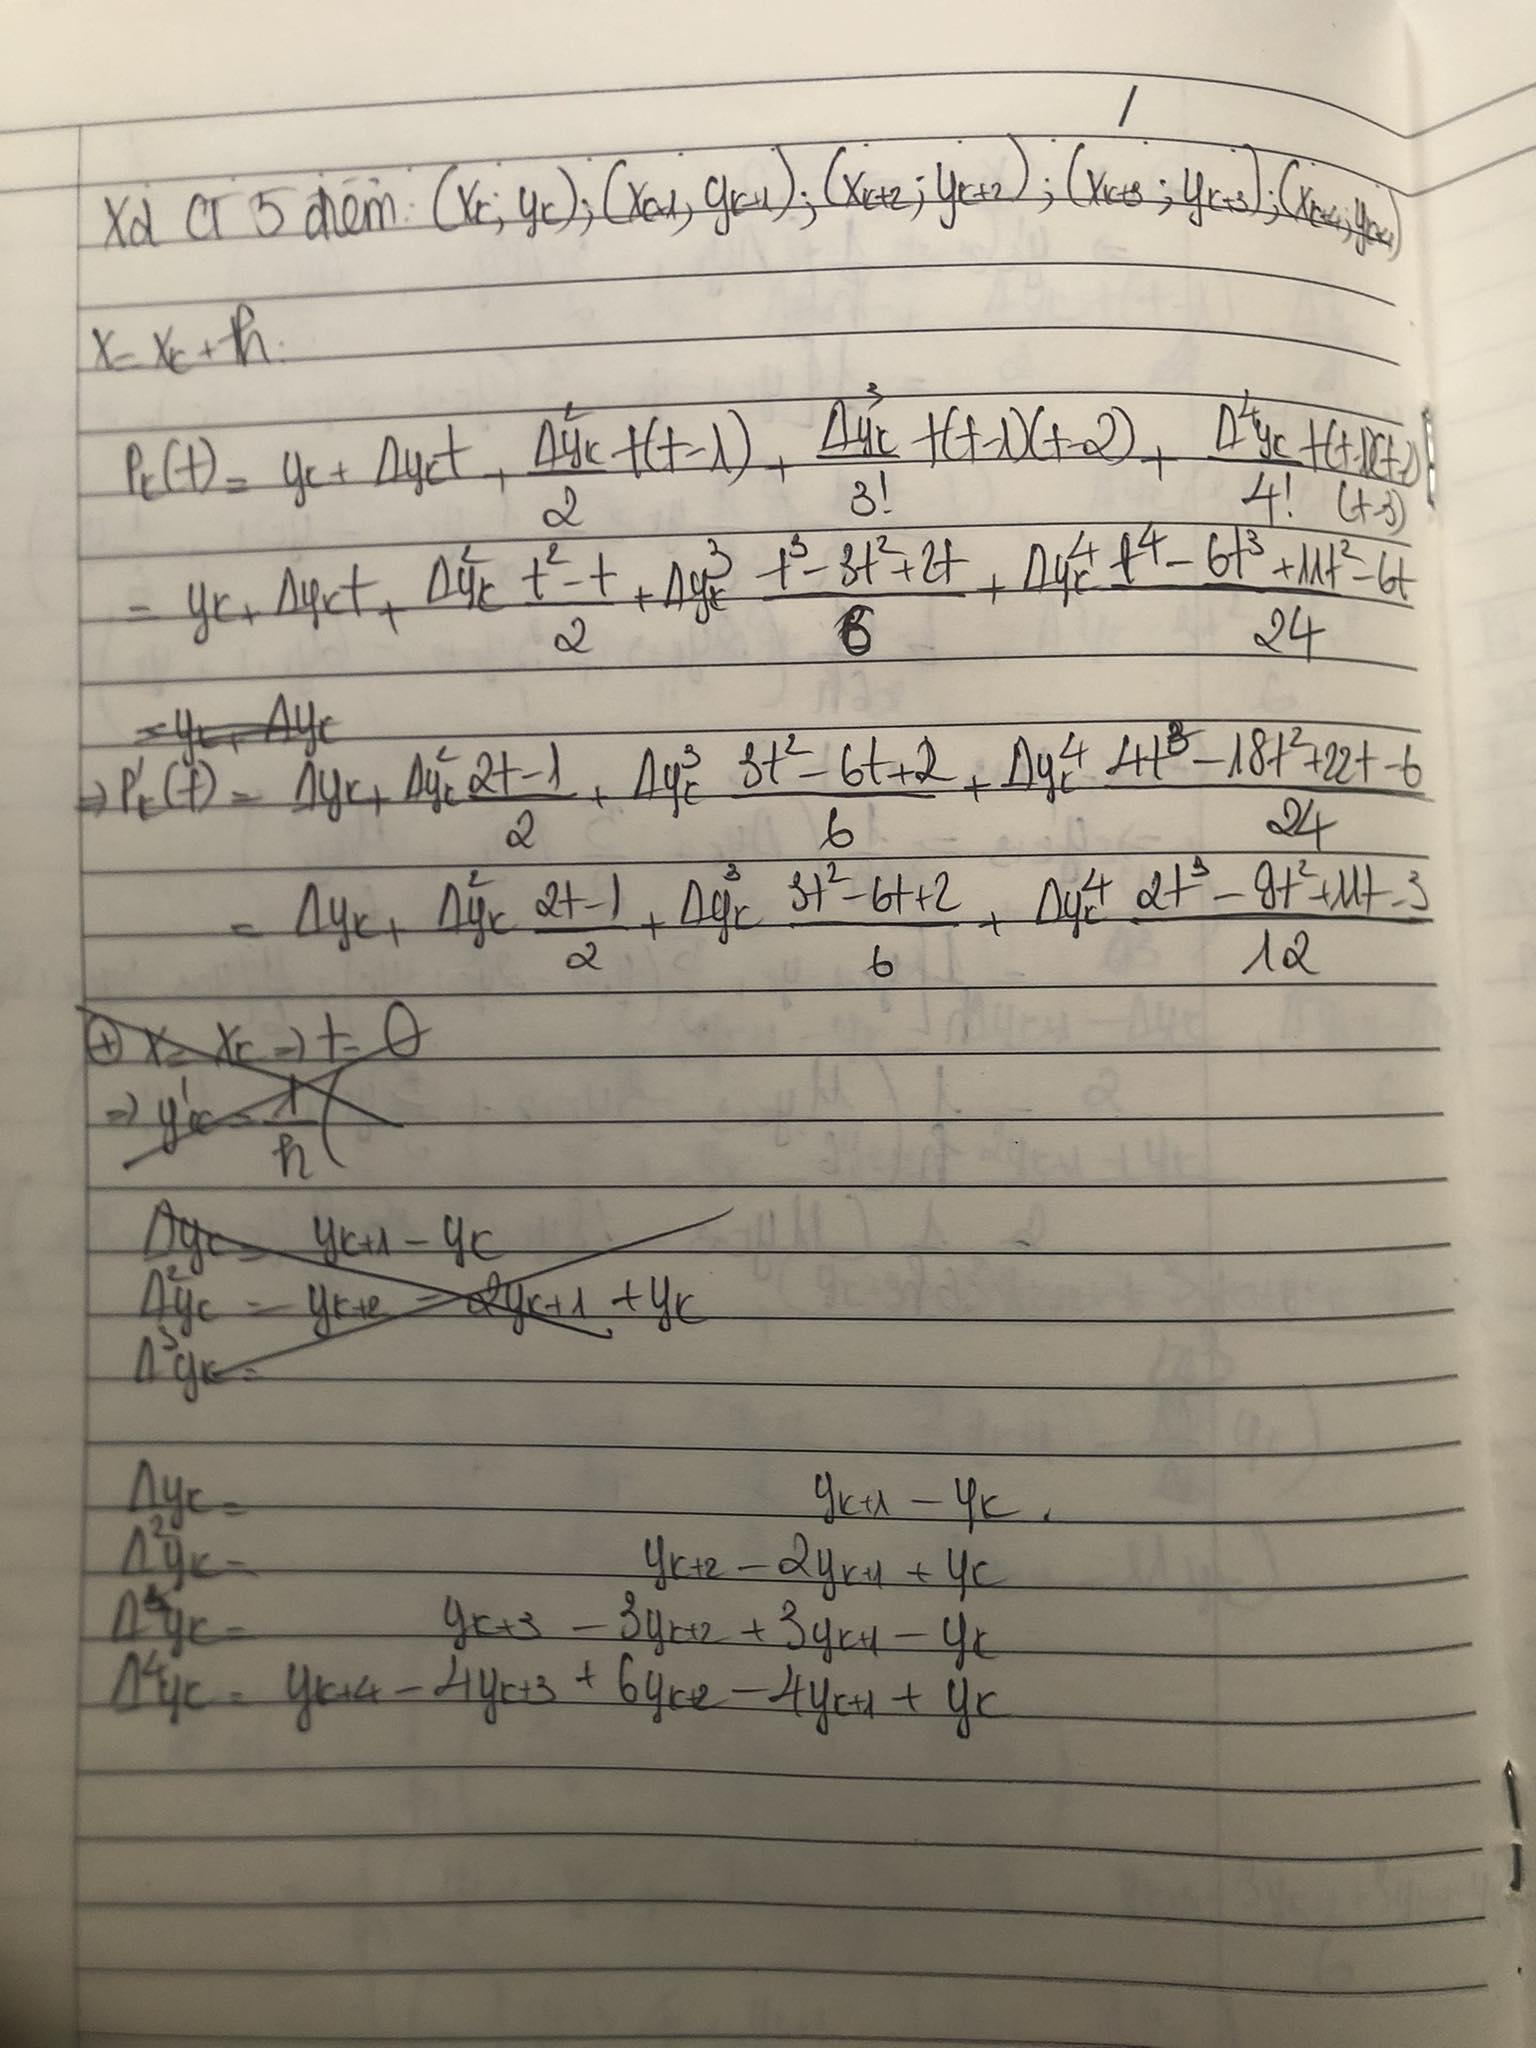 Xd CT 5 điểm: (xₖ; yₖ); (xₖ₊₁, yₖ₊₁); (xₖ₊₂; yₖ₊₂); (xₖ₊₃; yₖ₊₃); (xₖ₊₄; yₖ₊₄)
x = xₖ + th.
Pₖ(t) = yₖ + Δyₖt + Δ²yₖ/2 t(t-1) + Δ³yₖ/3! t(t-1)(t-2) + Δ⁴yₖ/4! t(t-1)(t-2)(t-3)
= yₖ + Δyₖt + Δ²yₖ (t²-t)/2 + Δyₖ³ (t³-3t²+2t)/6 + Δyₖ⁴ (t⁴-6t³+11t²-6t)/24
= yₖ + Δyₖ
⇒ P'ₖ(t) = Δyₖ + Δyₖ² (2t-1)/2 + Δyₖ³ (3t²-6t+2)/6 + Δyₖ⁴ (4t³-18t²+22t-6)/24
= Δyₖ + Δ²yₖ (2t-1)/2 + Δyₖ³ (3t²-6t+2)/6 + Δyₖ⁴ (2t³-9t²+11t-3)/12
⊕ x = xₖ ⇒ t = 0
⇒ y'ₖ = 1/h (
Δyₖ = yₖ₊₁ - yₖ
Δ²yₖ = yₖ₊₂ - 2yₖ₊₁ + yₖ
Δ³yₖ =
Δyₖ = yₖ₊₁ - yₖ.
Δ²yₖ = yₖ₊₂ - 2yₖ₊₁ + yₖ
Δ³yₖ = yₖ₊₃ - 3yₖ₊₂ + 3yₖ₊₁ - yₖ
Δ⁴yₖ = yₖ₊₄ - 4yₖ₊₃ + 6yₖ₊₂ - 4yₖ₊₁ + yₖ